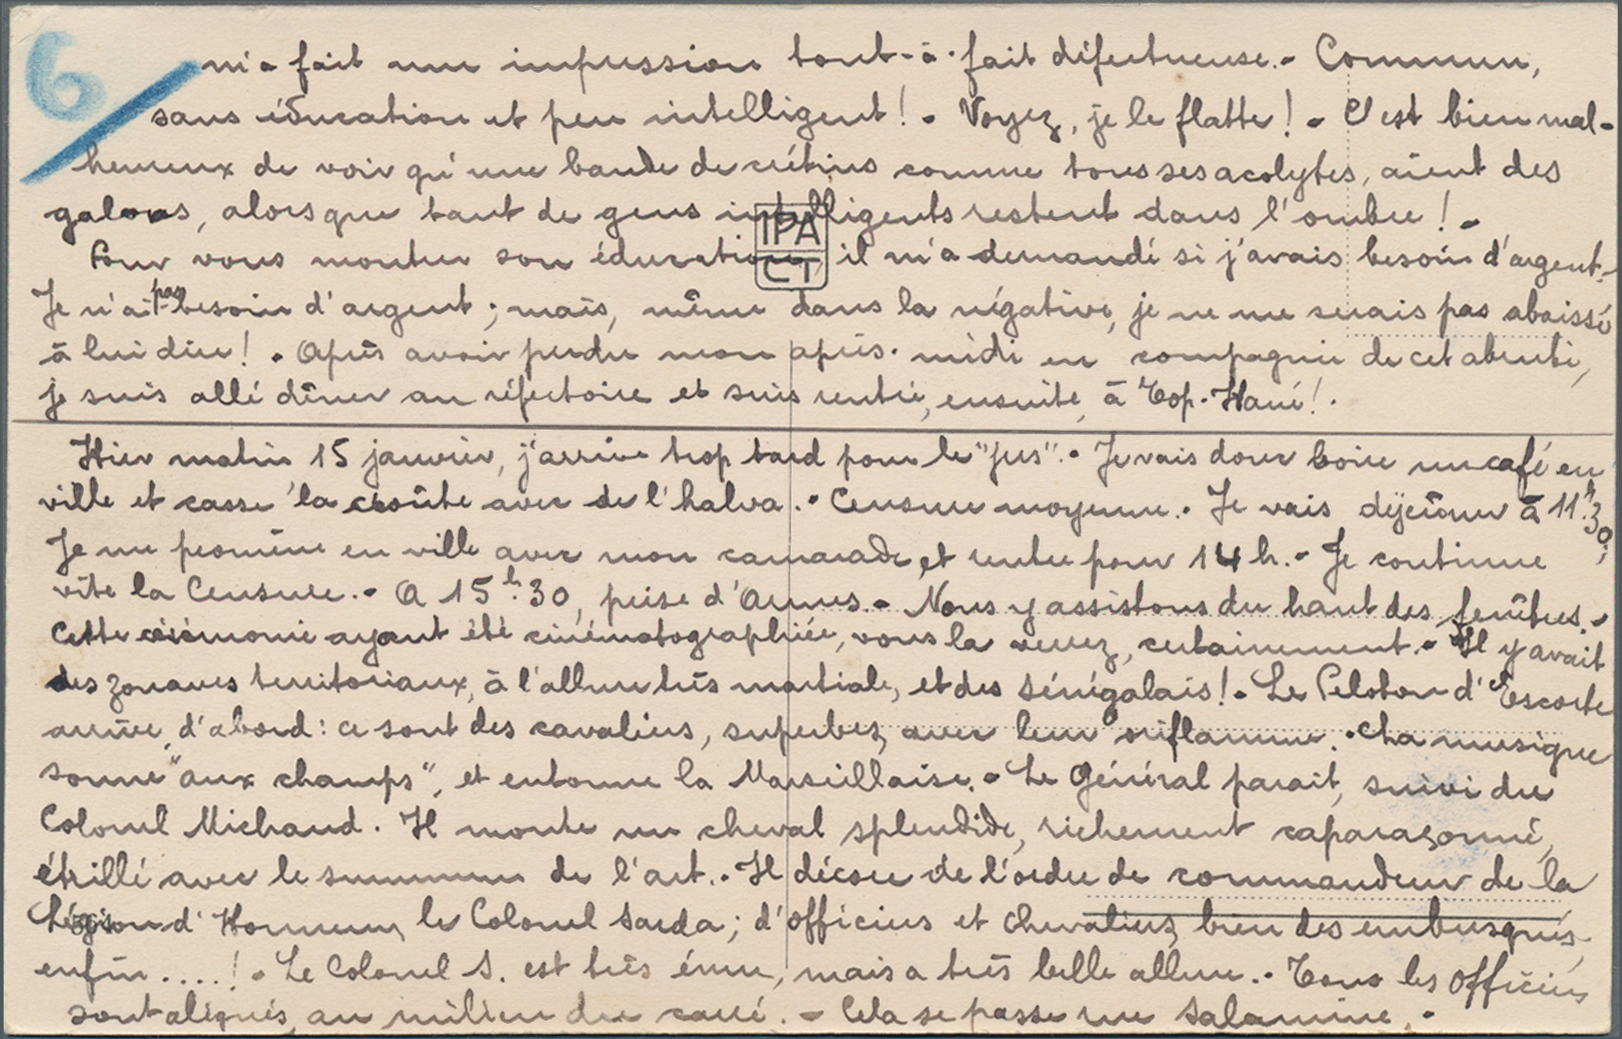 6
m'a fait une impression tout-à-fait défectueuse.- Commun,
sans éducation et peu intelligent! - Voyez, je le flatte! - C'est bien mal-
heureux de voir qu'une bande de crétins comme tous ses acolytes, aient des
galons, alors que tant de gens intelligents restent dans l'ombre! -
Pour vous montrer son éducation, il m'a demandé si j'avais besoin d'argent.-
Je n'ai pas besoin d'argent; mais, même dans la négative, je ne me serais pas abaissé
à lui dire! - Après avoir perdu mon après-midi en compagnie de cet abruti,
je suis allé dîner au réfectoire et suis rentré, ensuite, à Top-Hané! -
IPA
CT
Hier matin 15 janvier, j'arrive trop tard pour le "jus".- Je vais donc boire un café en
ville et casse la croûte avec de l'halva.- Censure moyenne.- Je vais déjeûner à 11h.30;
Je me promène en ville avec mon camarade et rentre pour 14 h.- Je continue
vite la Censure.- A 15h.30, prise d'Armes.- Nous y assistons du haut des fenêtres.-
Cette cérémonie ayant été cinématographiée, vous la verrez, certainement.- Il y avait
des zouaves territoriaux, à l'allure très martiale, et des Sénégalais! - Le Peloton d'Escorte
arrive, d'abord: ce sont des cavaliers, superbes, avec leur oriflamme.- La musique
sonne "aux champs", et entonne la Marseillaise.- Le Général parait, suivi du
Colonel Michaud. Il monte un cheval splendide, richement caparaçonné,
étrillé avec le summum de l'art.- Il décore de l'ordre de commandeur de la
Légion d'Honneur, le Colonel Sarda; d'officiers et chevaliers, bien des embusqués,
enfin....! - Le Colonel S. est très ému, mais a très belle allure.- Tous les officiers
sont alignés au milieu du carré. - Cela se passe rue Salamine.-